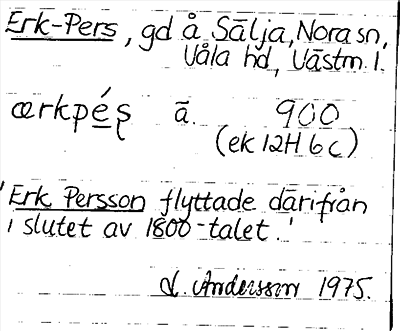 Erk-Pers, gd å Sälja, Nora sn,
Våla hd, Västm. l.
ærkpés̨ ā. 900
(ek 12H 6c)
'Erk Persson flyttade därifrån
i slutet av 1800-talet.'
L. Andersson 1975.